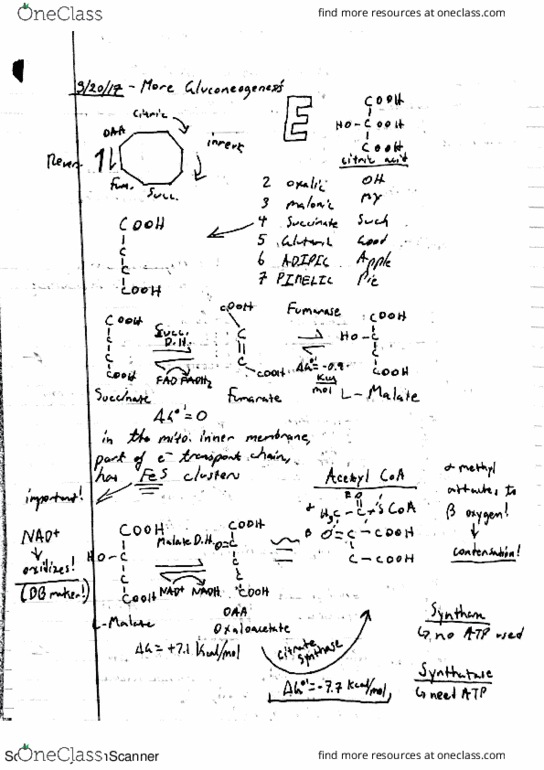 OneClass
find more resources at oneclass.com
9/20/17 - More Gluconeogenesis
Citric
OAA
invert
Fum.
Succ.
E
COOH
HO-C COOH
C
COOH
Citric acid
2 oxalic OH
3 malonic MY
4 Succinate Such
5 Glutaric Good
6 ADIPIC Apple
7 PIMELIC Pie
COOH
C
C
COOH
COOH
C
C
COOH
Succinate
Succ. D.H.
FAD FADH2
ΔG°'=0
COOH
C
C
COOH
Fumarate
Fumarase
ΔG°'=-0.9
Kcal
mol
COOH
HO-C
C
COOH
L-Malate
in the mito. inner membrane,
part of e- transport chain,
has FeS clusters
important!
NAD+
oxidizes!
(DB maker!)
COOH
HO-C
C
COOH
L-Malate
Malate D.H.
NAD+ NADH
ΔG=+7.1 Kcal/mol
COOH
O=C
C
COOH
OAA
Oxaloacetate
Acetyl CoA
α H3C-C-S CoA
β O=C-COOH
C-COOH
α methyl
attacks to
β oxygen!
condensation!
Citrate
Synthase
ΔG°'=-7.7 Kcal/mol
Synthase
no ATP used
Synthetase
need ATP
OneClass
Scanner
find more resources at oneclass.com